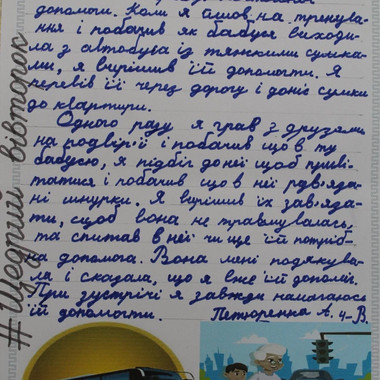 допомоги. Коли я йшов на тренува-
ння і побачив як бабуся виходи-
ла з автобуса із тяжкими сумка-
ми, я вирішив їй допомогти. Я
перевів її через дорогу і доніс сумки
до квартири.
Одного разу я грав з друзями
на подвір'ї і побачив що в ту
бабусю, я підбіг до неї щоб приві-
татися і побачив що в неї рдв'яза-
ні шнурки. Я вирішив їх зав'яза-
ти, щоб вона не травмувалась,
та спитав в неї чи ще їй потріб-
на допомога. Вона мені подякува-
ла і сказала, що я вже їй допоміг.
При зустрічі я завжди намагаюсь
їй допомогти.
А. 4-В.
#Щедрий вівторок